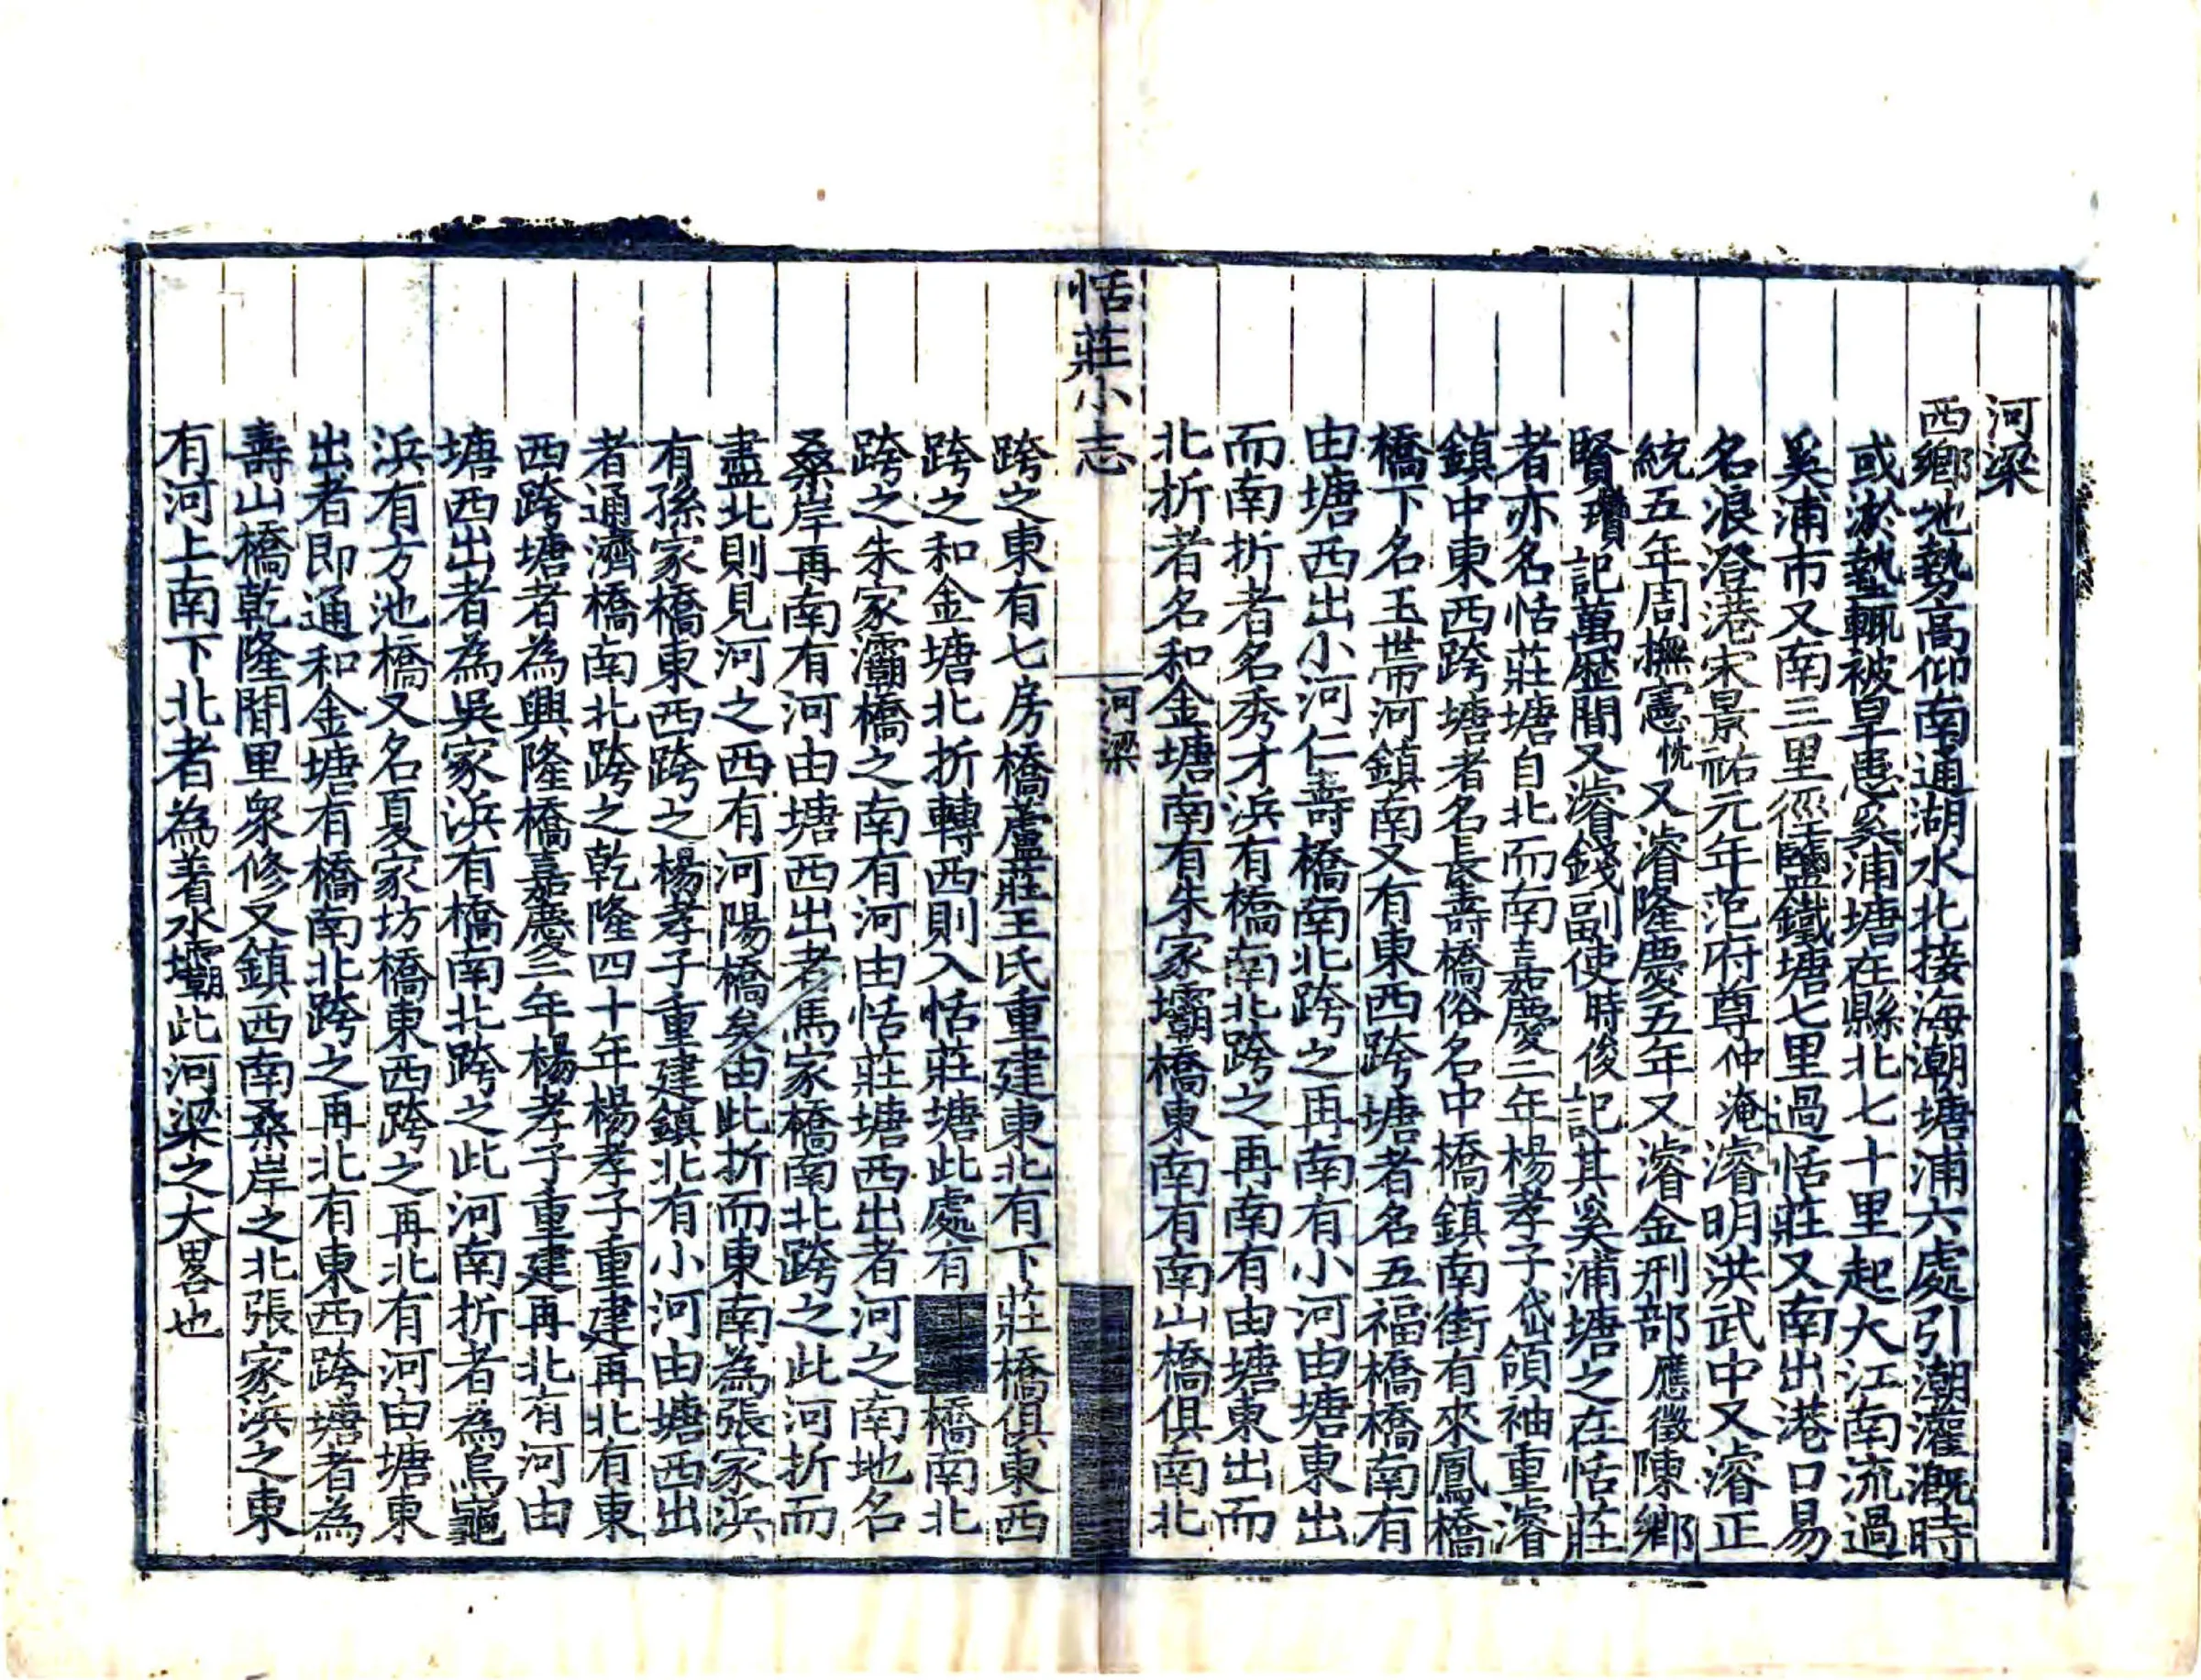 河梁
西鄉地勢高仰南通湖水北接海潮塘浦六處引潮灌溉時
或淤墊輒被旱患奚浦塘在縣北七十里起大江南流過
奚浦市又南三里徑鹽鐵塘七里過恬莊又南出港口易
名浪澄港宋景祐元年范府尊仲淹濬明洪武中又濬正
統五年周撫憲忱又濬隆慶五年又濬金刑部應徵陳鄉
賢瓚記萬歷間又濬錢副使時俊記其奚浦塘之在恬莊
者亦名恬莊塘自北而南嘉慶二年楊孝子岱領袖重濬
鎮中東西跨塘者名長壽橋俗名中橋鎮南街有來鳳橋
橋下名玉帶河鎮南又有東西跨塘者名五福橋橋南有
由塘西出小河仁壽橋南北跨之再南有小河由塘東出
而南折者名秀才浜有橋南北跨之再南有由塘東出而
北折者名和金塘南有朱家壩橋東南有南山橋俱南北
恬莊小志
河梁
跨之東有七房橋蘆莊王氏重建東北有下莊橋俱東西
跨之和金塘北折轉西則入恬莊塘此處有 橋南北
跨之朱家灞橋之南有河由恬莊塘西出者河之南地名
桑岸再南有河由塘西出者馬家橋南北跨之此河折而
盡北則見河之西有河陽橋矣由此折而東南為張家浜
有孫家橋東西跨之楊孝子重建鎮北有小河由塘西出
者通濟橋南北跨之乾隆四十年楊孝子重建再北有東
西跨塘者為興隆橋嘉慶二年楊孝子重建再北有河由
塘西出者為吳家浜有橋南北跨之此河南折者為烏龜
浜有方池橋又名夏家坊橋東西跨之再北有河由塘東
出者即通和金塘有橋南北跨之再北有東西跨塘者為
壽山橋乾隆間里眾修又鎮西南桑岸之北張家浜之東
有河上南下北者為着水壩此河梁之大畧也